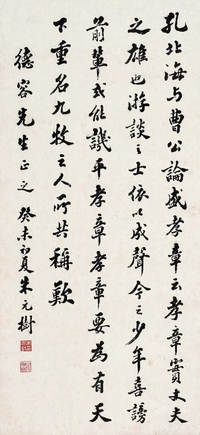 孔北海与曹公論盛孝章云孝章實丈夫
之雄也游談之士依以成聲今之少年喜謗
前輩或能譏平孝章孝章要為有天
下重名九牧之人所共稱歎
德容先生正之 癸未初夏朱元樹